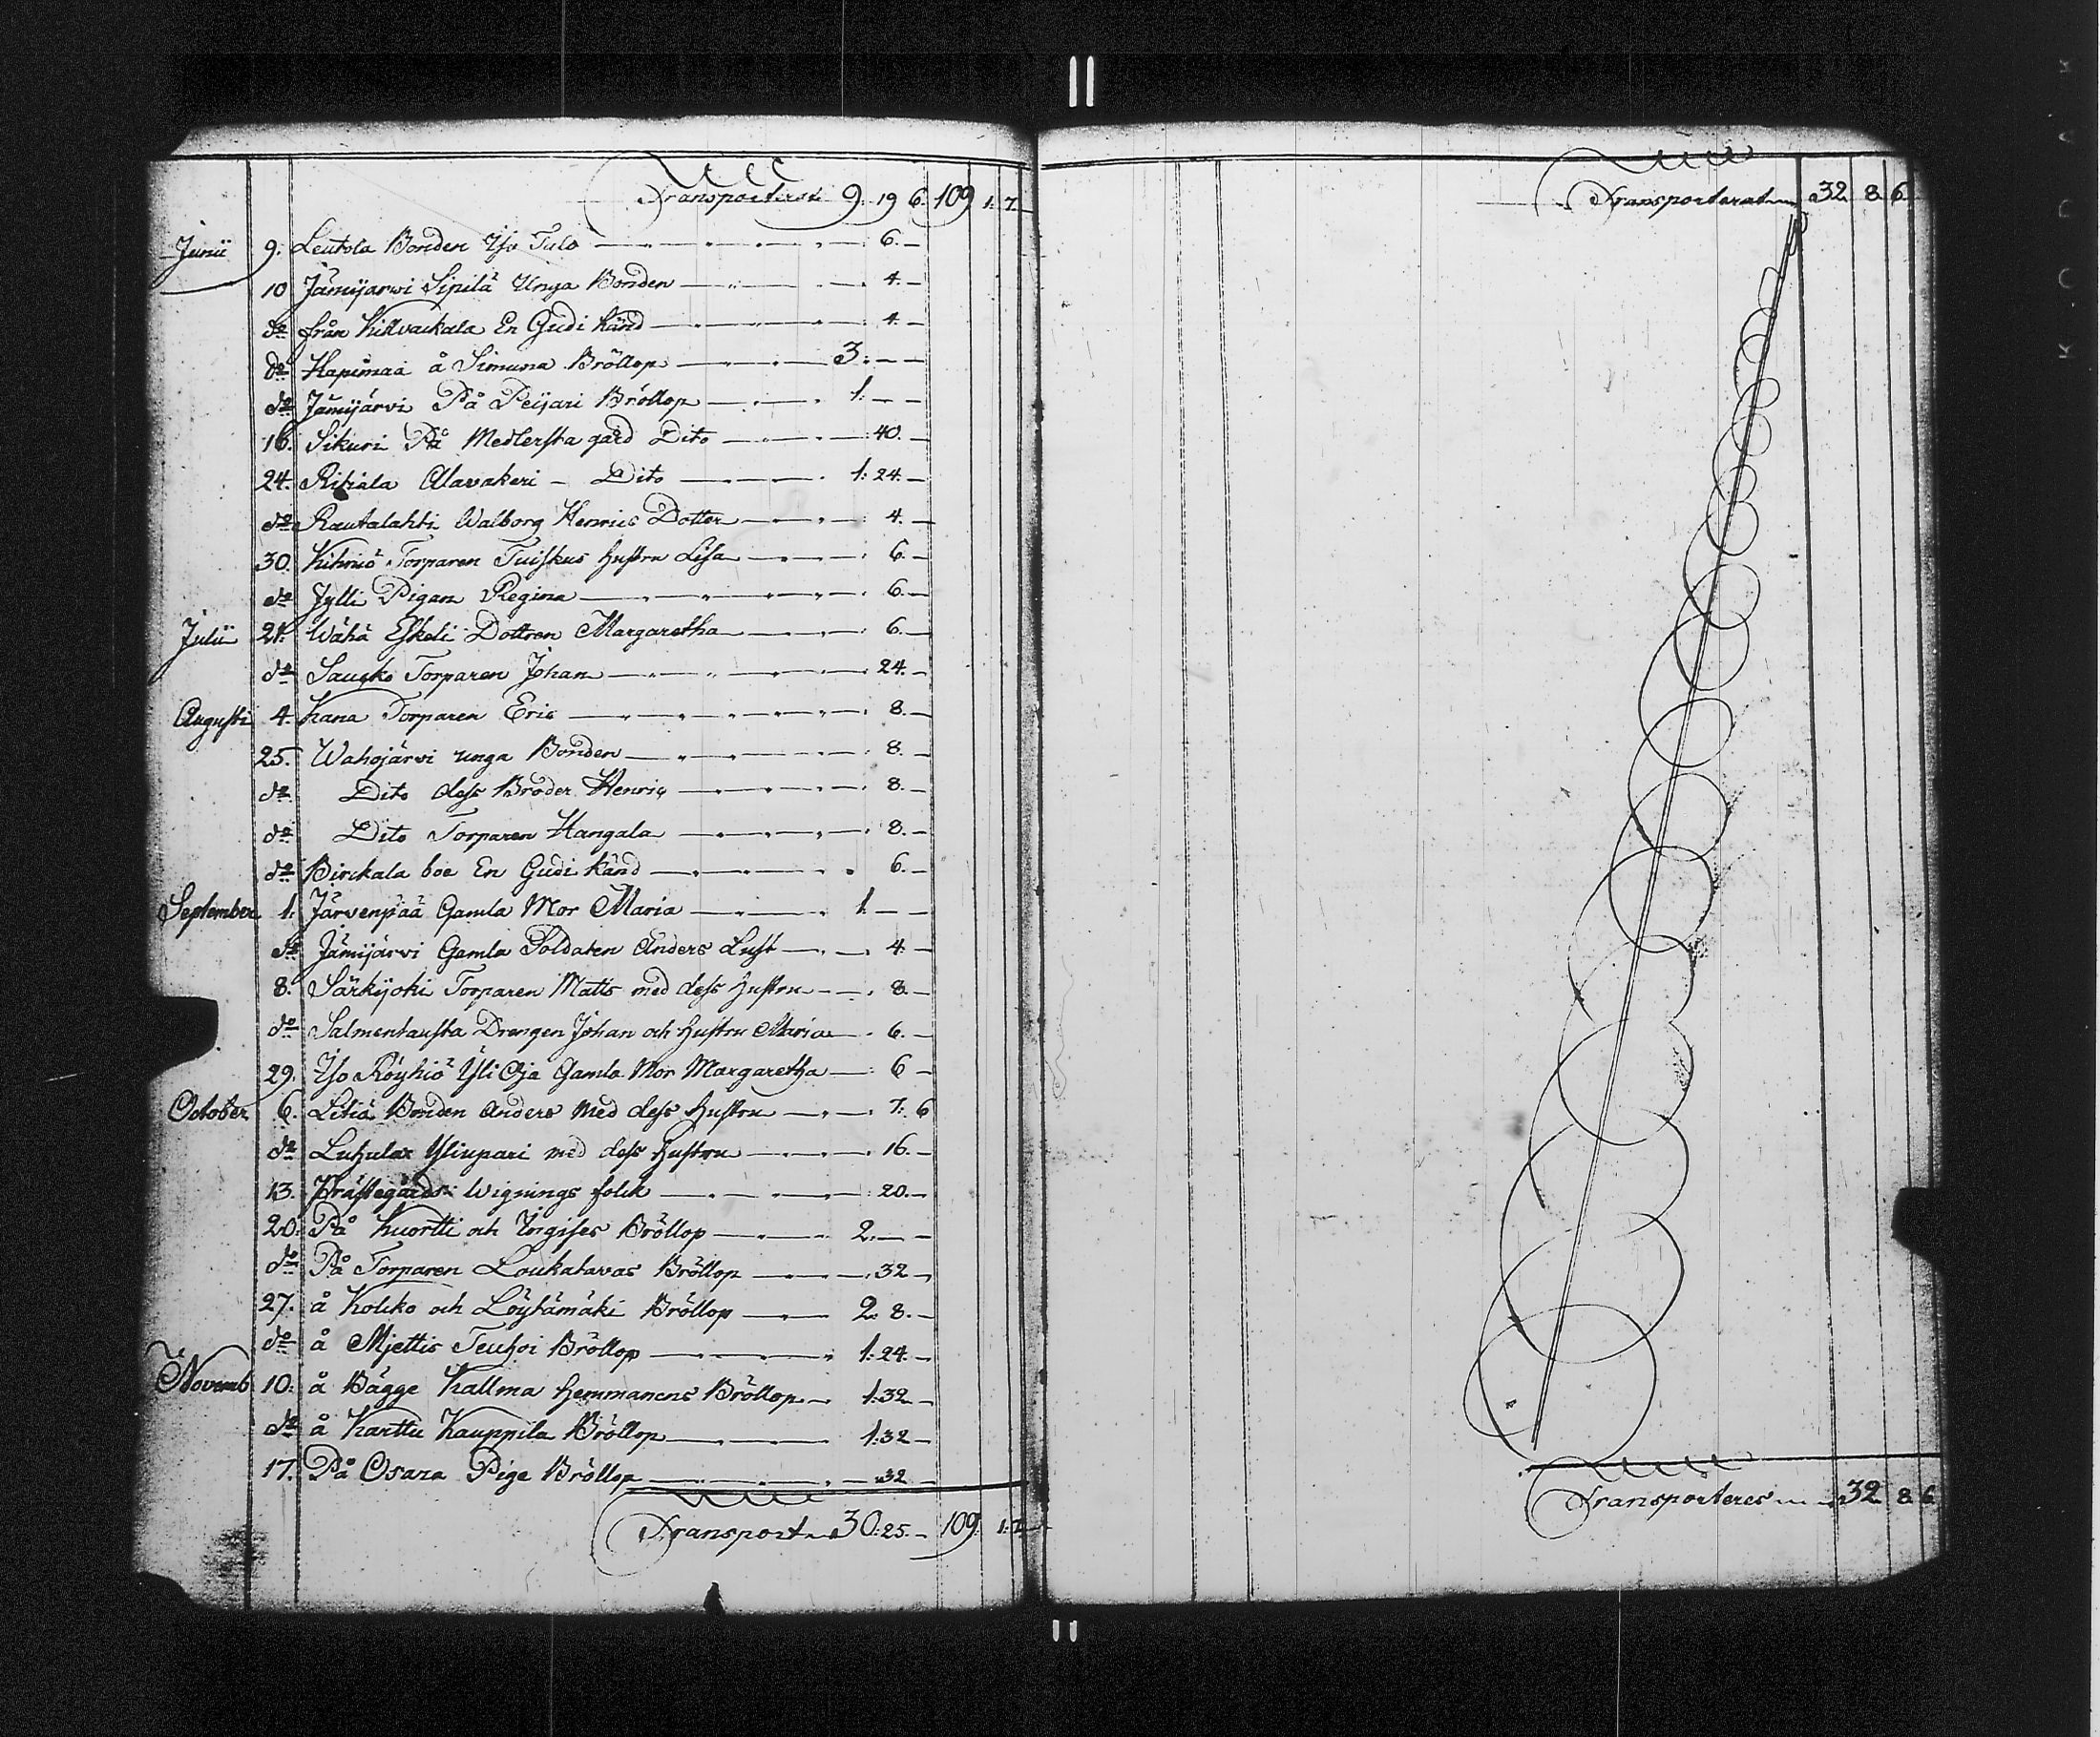 Transporterat 9. 19 6. 109 1. 7.
Junii 9. Leutola Bonden Iso Tulo 6. —
10 Jämijarwi Sipilä Unga Bonden 4. —
do från Killvackala En Gudi känd 4. —
do Hapimaa å Simuna Bröllop 3: — —
do Jämijärvi På Peijari Bröllop 1: — —
16. Sikuri På Medlersta gård Dito 40. —
24. Rihiala Alavakeri — Dito 1: 24. —
do Rautalahti Walborg Henrics Dotter 4. —
30. Kihniö Torparen Tuiskus hustru Lisa 6. —
do Jylli Pigan Regina 6. —
Julii 21. Wähä Eskeli Dottren Margaretha 6. —
do Saucko Torparen Johan 24. —
Augusti 4. Kana Torparen Eric 8. —
25. Wahojärvi unga Bonden 8. —
do Dito dess Broder Henric 8. —
do Dito Torparen Hangala 8. —
do Birckala boe En Gudi känd 6. —
September 1. Järvenpää Gamla Mor Maria 1. — —
do Jämijärvi Gamla Soldaten Anders Lust 4. —
8. Särkijoki Torparen Matts med dess hustru 8. —
do Salmentausta Drengen Johan och hustru Maria 6. —
29. Iso Röyhiö Yli Oja Gamla Mor Margaretha 6 —
October 6. Litiä Bonden Anders Med dess hustru 7: 6
do Luhulax Yliupari med dess hustru 16. —
13. Prästegårds Wignings folck 20. —
20. På Kuortti och Yrgises Bröllop 2. — —
do På Torparen Loukatavas Bröllop 32 —
27. å Kolcko och Löytämäki Bröllop 2. 8. —
do å Mjettis Teuhoi Bröllop 1: 24. —
Novemb 10. å Bägge Kallma hemmanens Bröllop 1: 32 —
do å Karttu Kauppila Bröllop 1: 32 —
17. På Osara Pige Bröllop 32 —
Transport 30: 25. — 109. 1: 7
Transporterat 32 8. 6.
Transporteres 32 8. 6.
KODAK